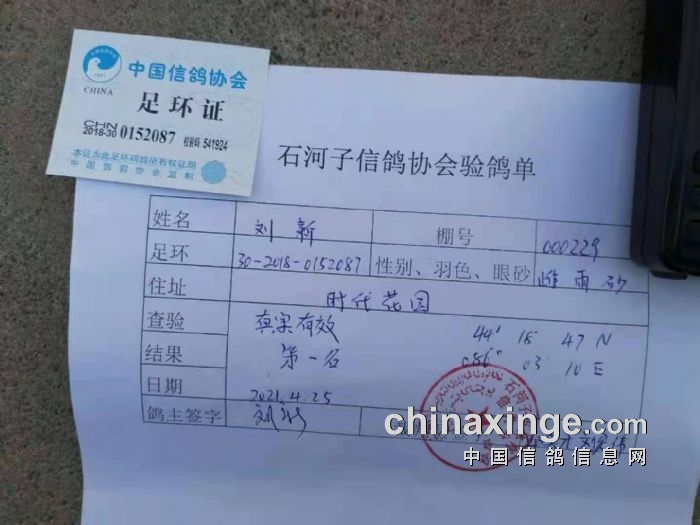 中国信鸽协会
CHINA
足环证
CHN
2018-30 0152087 校验码 541924
本证为此足环码鸽所有权证明
中国信鸽协会监制
石河子信鸽协会验鸽单
姓名 刘新 棚号 000229
足环 30-2018-0152087 性别、羽色、眼砂 雌雨砂
住址 时代花园
查验 真实有效 44° 18 47 N
结果 第一名 086° 03 10 E
日期 2021.4.25
鸽主签字 刘新
石河子
chinaxinge.com
中国信鸽信息网